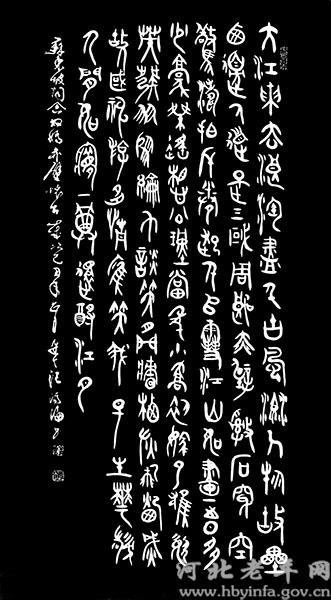 大江東去浪淘盡千古風流人物故壘
西邊人道是三國周郎赤壁亂石穿空
驚濤拍岸卷起千堆雪江山如畫一時多
少豪傑遙想公瑾當年小喬初嫁了雄姿
英發羽扇綸巾談笑間檣櫓灰飛煙滅
故國神遊多情應笑我早生華髮
人間如夢一尊還酹江月
蘇東坡詞念奴嬌赤壁懷古
河北老年网
www.hbyinfa.gov.cn